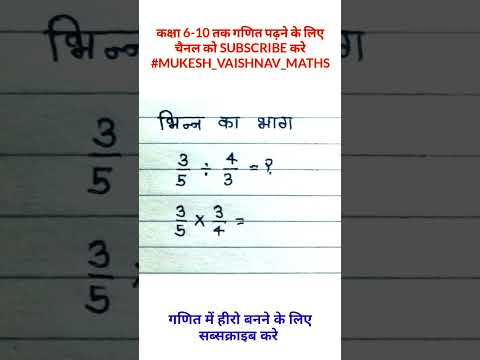 कक्षा 6-10 तक गणित पढ़ने के लिए
चैनल को SUBSCRIBE करे
#MUKESH_VAISHNAV_MATHS
भिन्न का भाग
3/5 ÷ 4/3 = ?
3/5 × 3/4 =
3/5
3/5
गणित में हीरो बनने के लिए
सब्सक्राइब करे